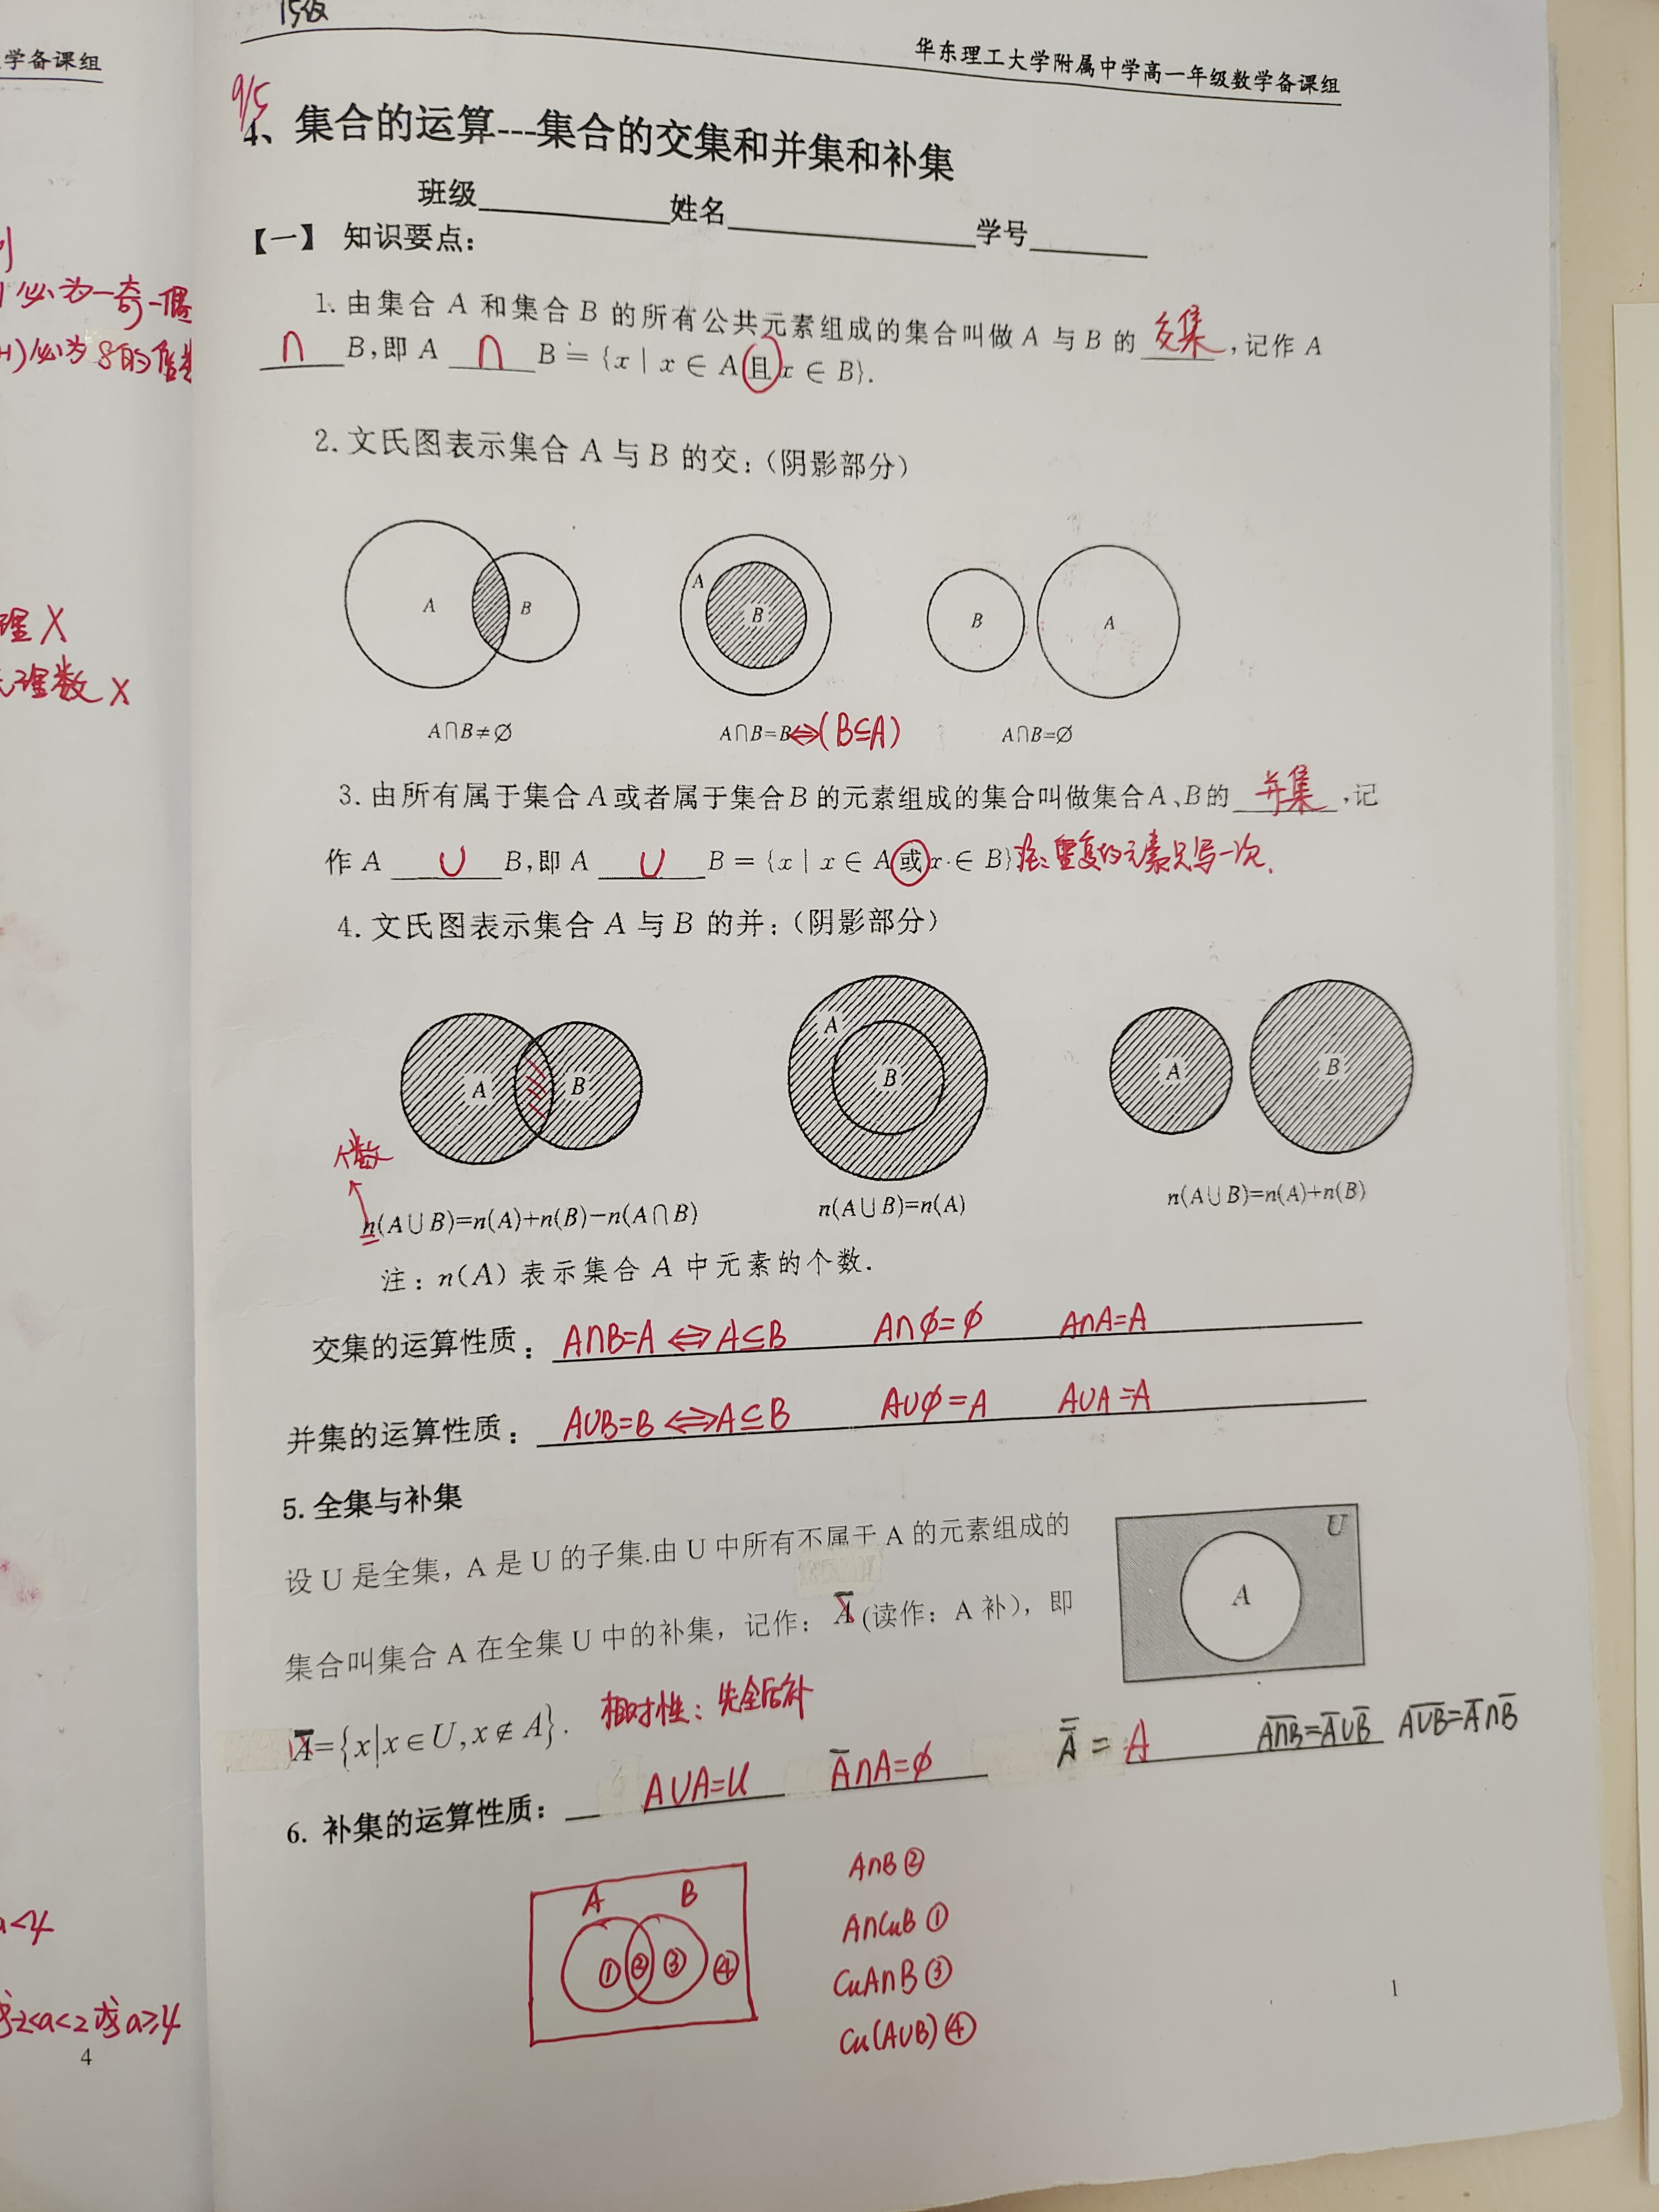 学备课组
必为一奇一偶
必为8的倍数
理X
理数X
a<4
-2<a<2或a≥4
4
15级
华东理工大学附属中学高一年级数学备课组
9/5
4、集合的运算---集合的交集和并集和补集
班级 姓名 学号
【一】 知识要点:
1. 由集合 A 和集合 B 的所有公共元素组成的集合叫做 A 与 B 的 交集, 记作 A
∩ B, 即 A ∩ B = {x | x ∈ A 且 x ∈ B}.
2. 文氏图表示集合 A 与 B 的交: (阴影部分)
A B A B B A
A∩B≠∅ A∩B=B⇔(B⊆A) A∩B=∅
3. 由所有属于集合 A 或者属于集合 B 的元素组成的集合叫做集合 A、B 的 并集, 记
作 A ∪ B, 即 A ∪ B = {x | x ∈ A 或 x ∈ B} 注: 重复的元素只写一次.
4. 文氏图表示集合 A 与 B 的并: (阴影部分)
A B A B A B
个数
n(A∪B)=n(A)+n(B)−n(A∩B) n(A∪B)=n(A) n(A∪B)=n(A)+n(B)
注: n(A) 表示集合 A 中元素的个数.
交集的运算性质: A∩B=A⇔A⊆B A∩∅=∅ A∩A=A
并集的运算性质: A∪B=B⇔A⊆B A∪∅=A A∪A=A
5. 全集与补集
设 U 是全集, A 是 U 的子集.由 U 中所有不属于 A 的元素组成的
集合叫集合 A 在全集 U 中的补集, 记作: A̅ (读作: A 补), 即
A̅={x|x∈U,x∉A}. 相对性: 先全后补
U
A
6. 补集的运算性质: A∪A=U A̅∩A=∅ A̿ = A A∩B̅=A̅∪B̅ A∪B̅=A̅∩B̅
A B
① ② ③ ④
A∩B ②
A∩CuB ①
CuA∩B ③
Cu(A∪B) ④
1